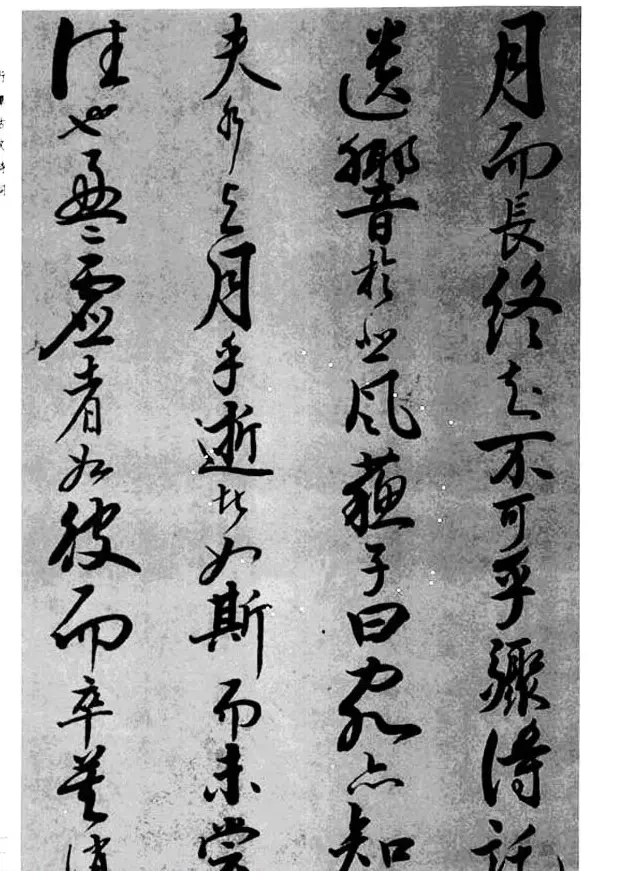 月而長終知不可乎驟得託
遺響於悲風蘇子曰客亦知
夫水与月乎逝者如斯而未嘗
往也盈〻虛者如彼而卒莫消